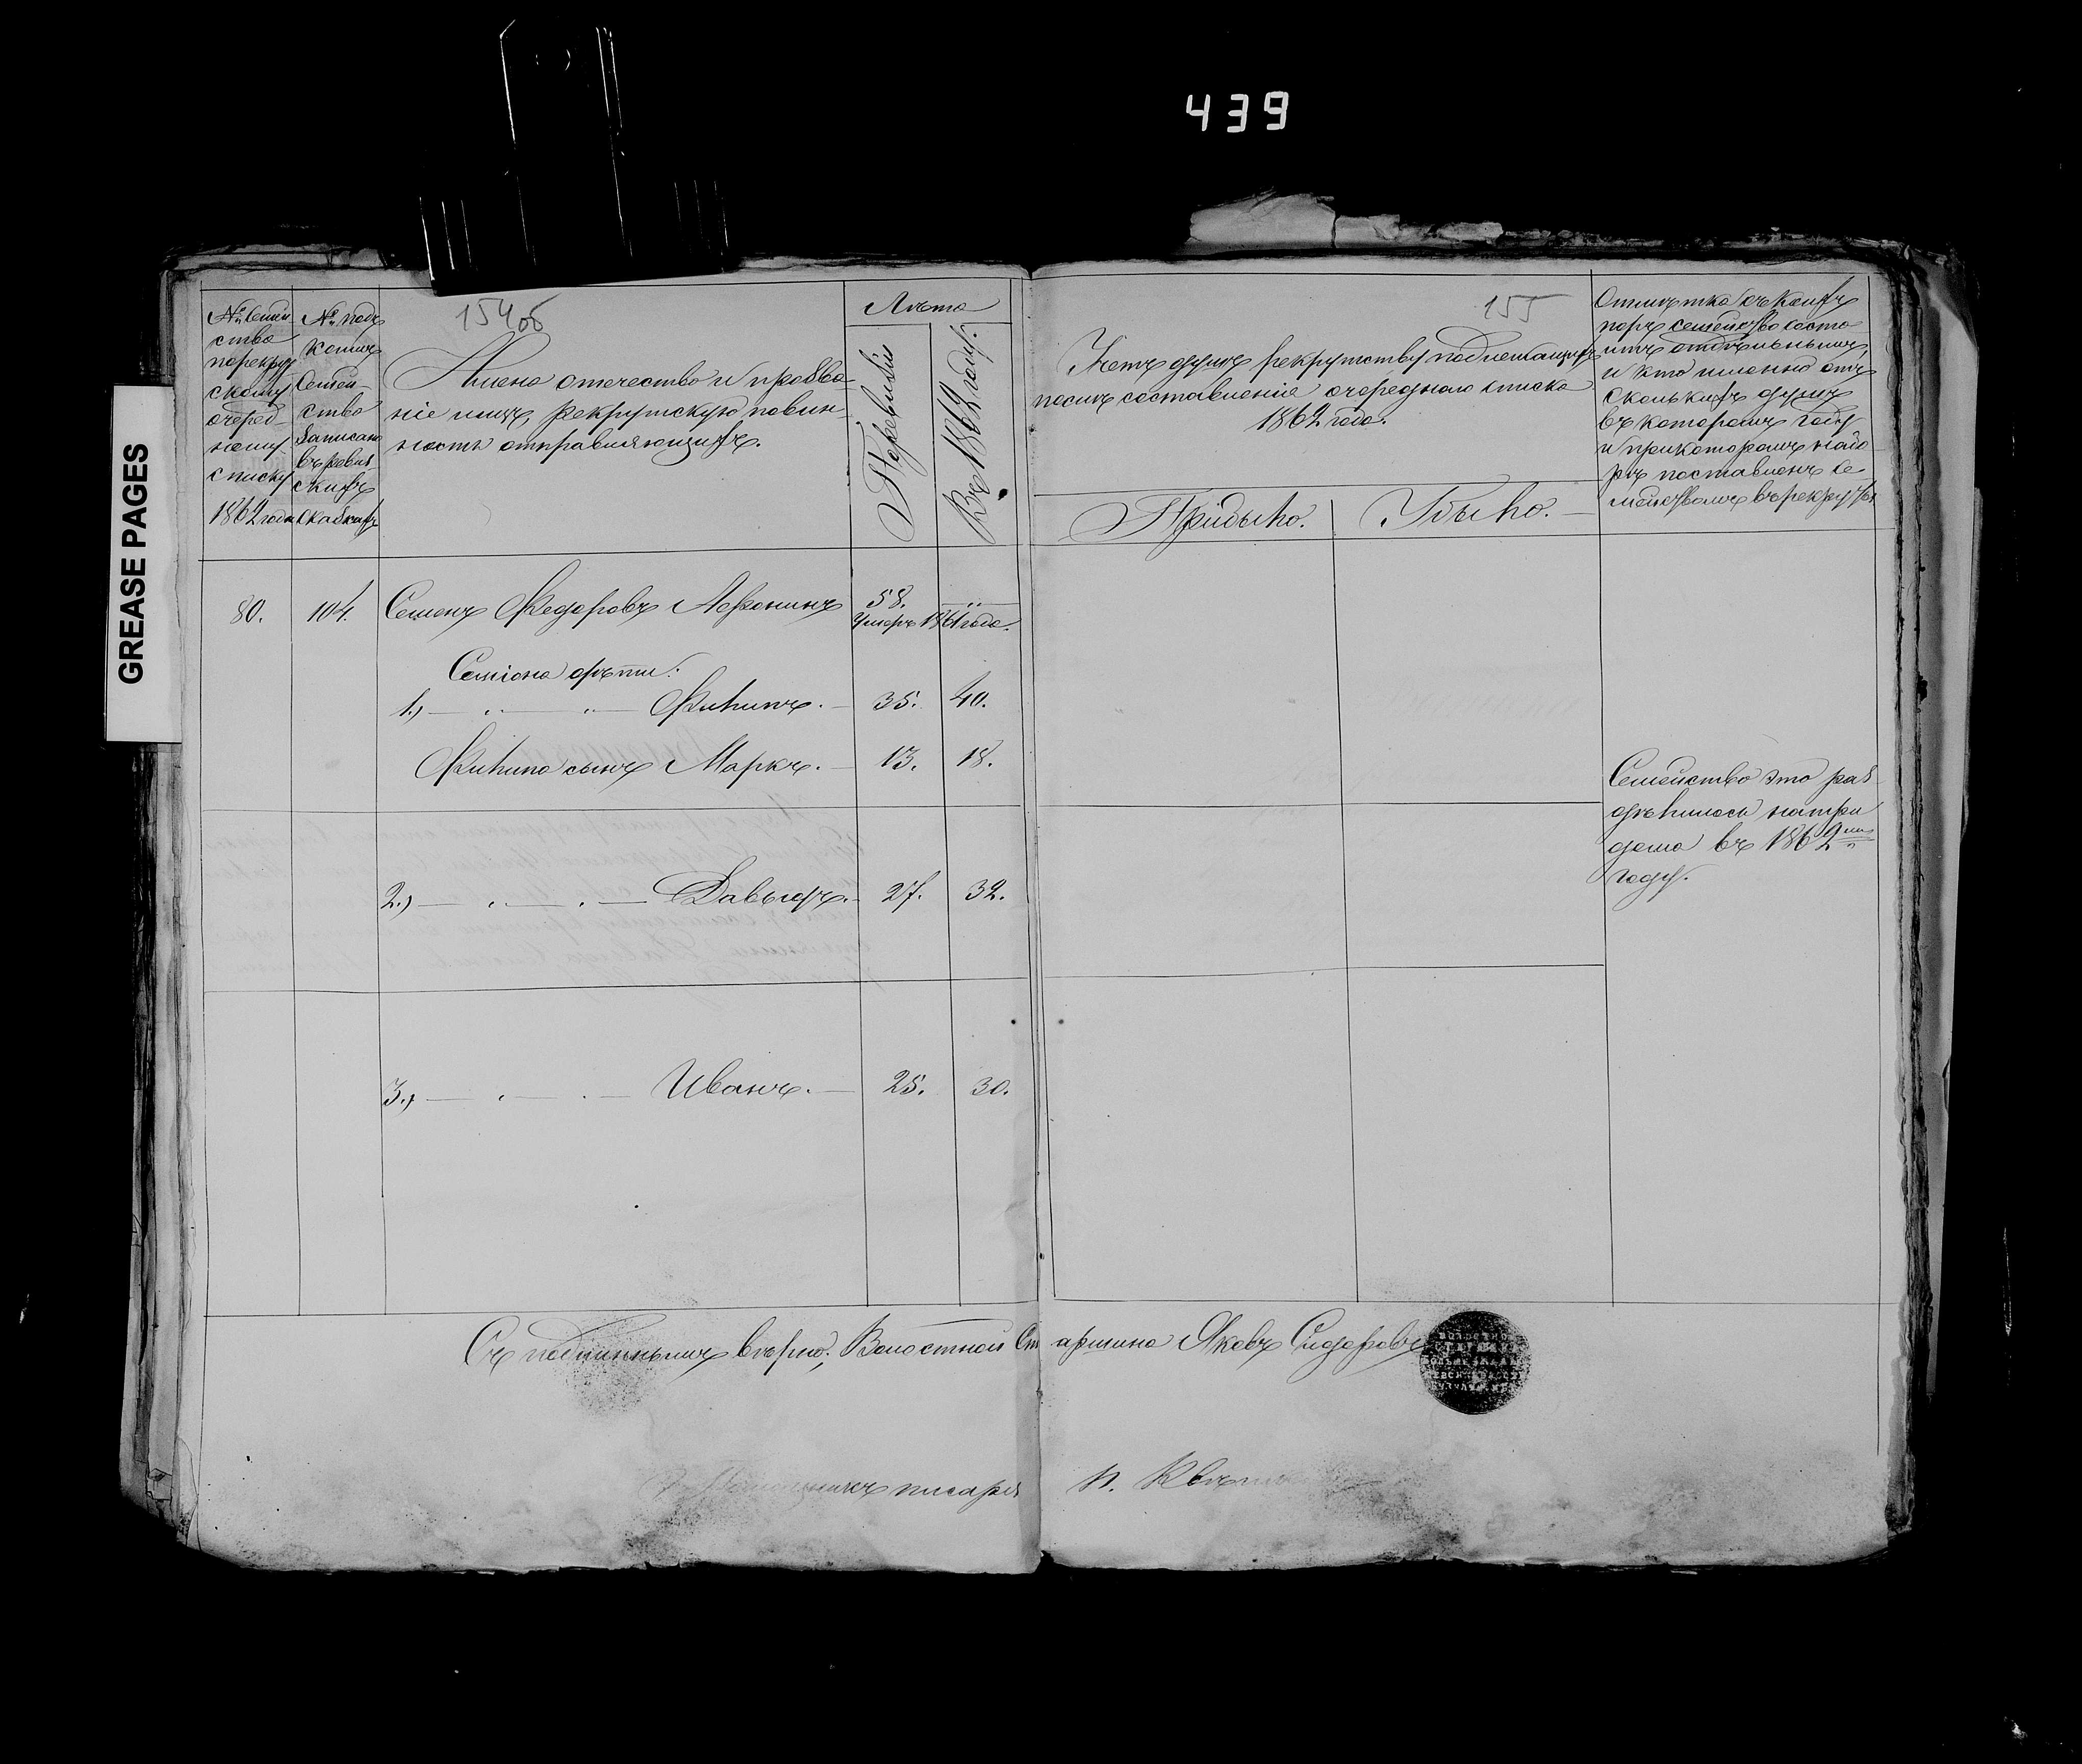 439
GREASE PAGES
154об
155
№ семей
ства
по рекру
скому
очеред
ному
списку
1862 года
№ подъ
коимъ
семей-
ство
записано
въ ревиз
скихъ
сказкахъ
Имена отечество и прозва-
ніе лицъ, рекрутскую повин-
ность отправляющихъ.
Лѣта
По ревизіи
Въ 1862 году.
Учетъ душъ рекрутству подлежащихъ
послѣ составленія очереднаго списка
1862 года.
Прибыло.
Убыло.
Отмѣтка съ коихъ
поръ семейство состо
итъ отдѣльнымъ,
и кто именно отъ
сколькихъ душъ
въ которомъ году
и при которомъ набо
рѣ поставленъ се
мействомъ въ рекруты
80. 104. Семенъ Федоровъ Афонинъ 58.
Умеръ 1861 года.
Семіона дѣти:
1.) — " — " — Филипъ. — 35. 40.
Филипа сынъ Маркъ. — 13. 18.
Семейство это раз
дѣлилось на три
дома въ 1862 мъ
году.
2.) — " — " — Давыдъ. — 27. 32.
3.) — " — " — Иванъ. — 25. 30.
Съ подлиннымъ вѣрно; Волостной Старшина Яковъ Сидоровъ
писаря